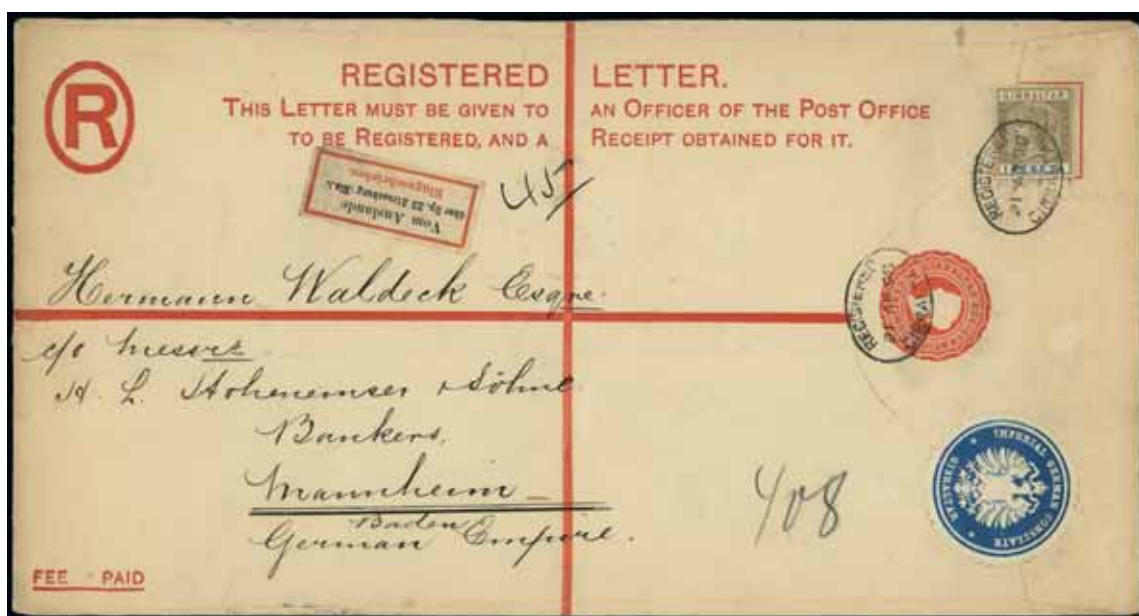 R
REGISTERED LETTER.
THIS LETTER MUST BE GIVEN TO AN OFFICER OF THE POST OFFICE
TO BE REGISTERED, AND A RECEIPT OBTAINED FOR IT.
GIBRALTAR
Vom Auslande
über Bp. 22 Strassburg (Els.).
Eingeschrieben.
45
REGISTERED
REGISTERED
GIBRALTAR
Hermann Waldeck Esqre.
c/o Messrs
H. L. Hohenemser & Söhne
Bankers.
Mannheim
Baden
German Empire.
408
IMPERIAL GERMAN CONSULATE
FEE PAID